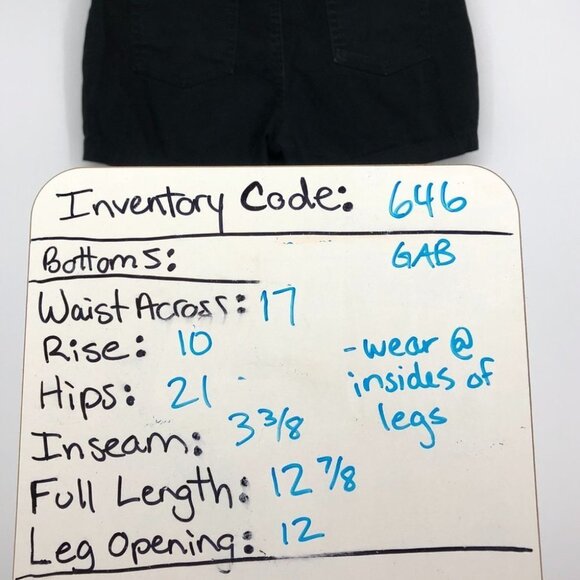 Inventory Code: 646
Bottoms: GAB
Waist Across: 17
Rise: 10
- wear @
Hips: 21
insides of
legs
Inseam: 3 3/8
Full Length: 12 7/8
Leg Opening: 12